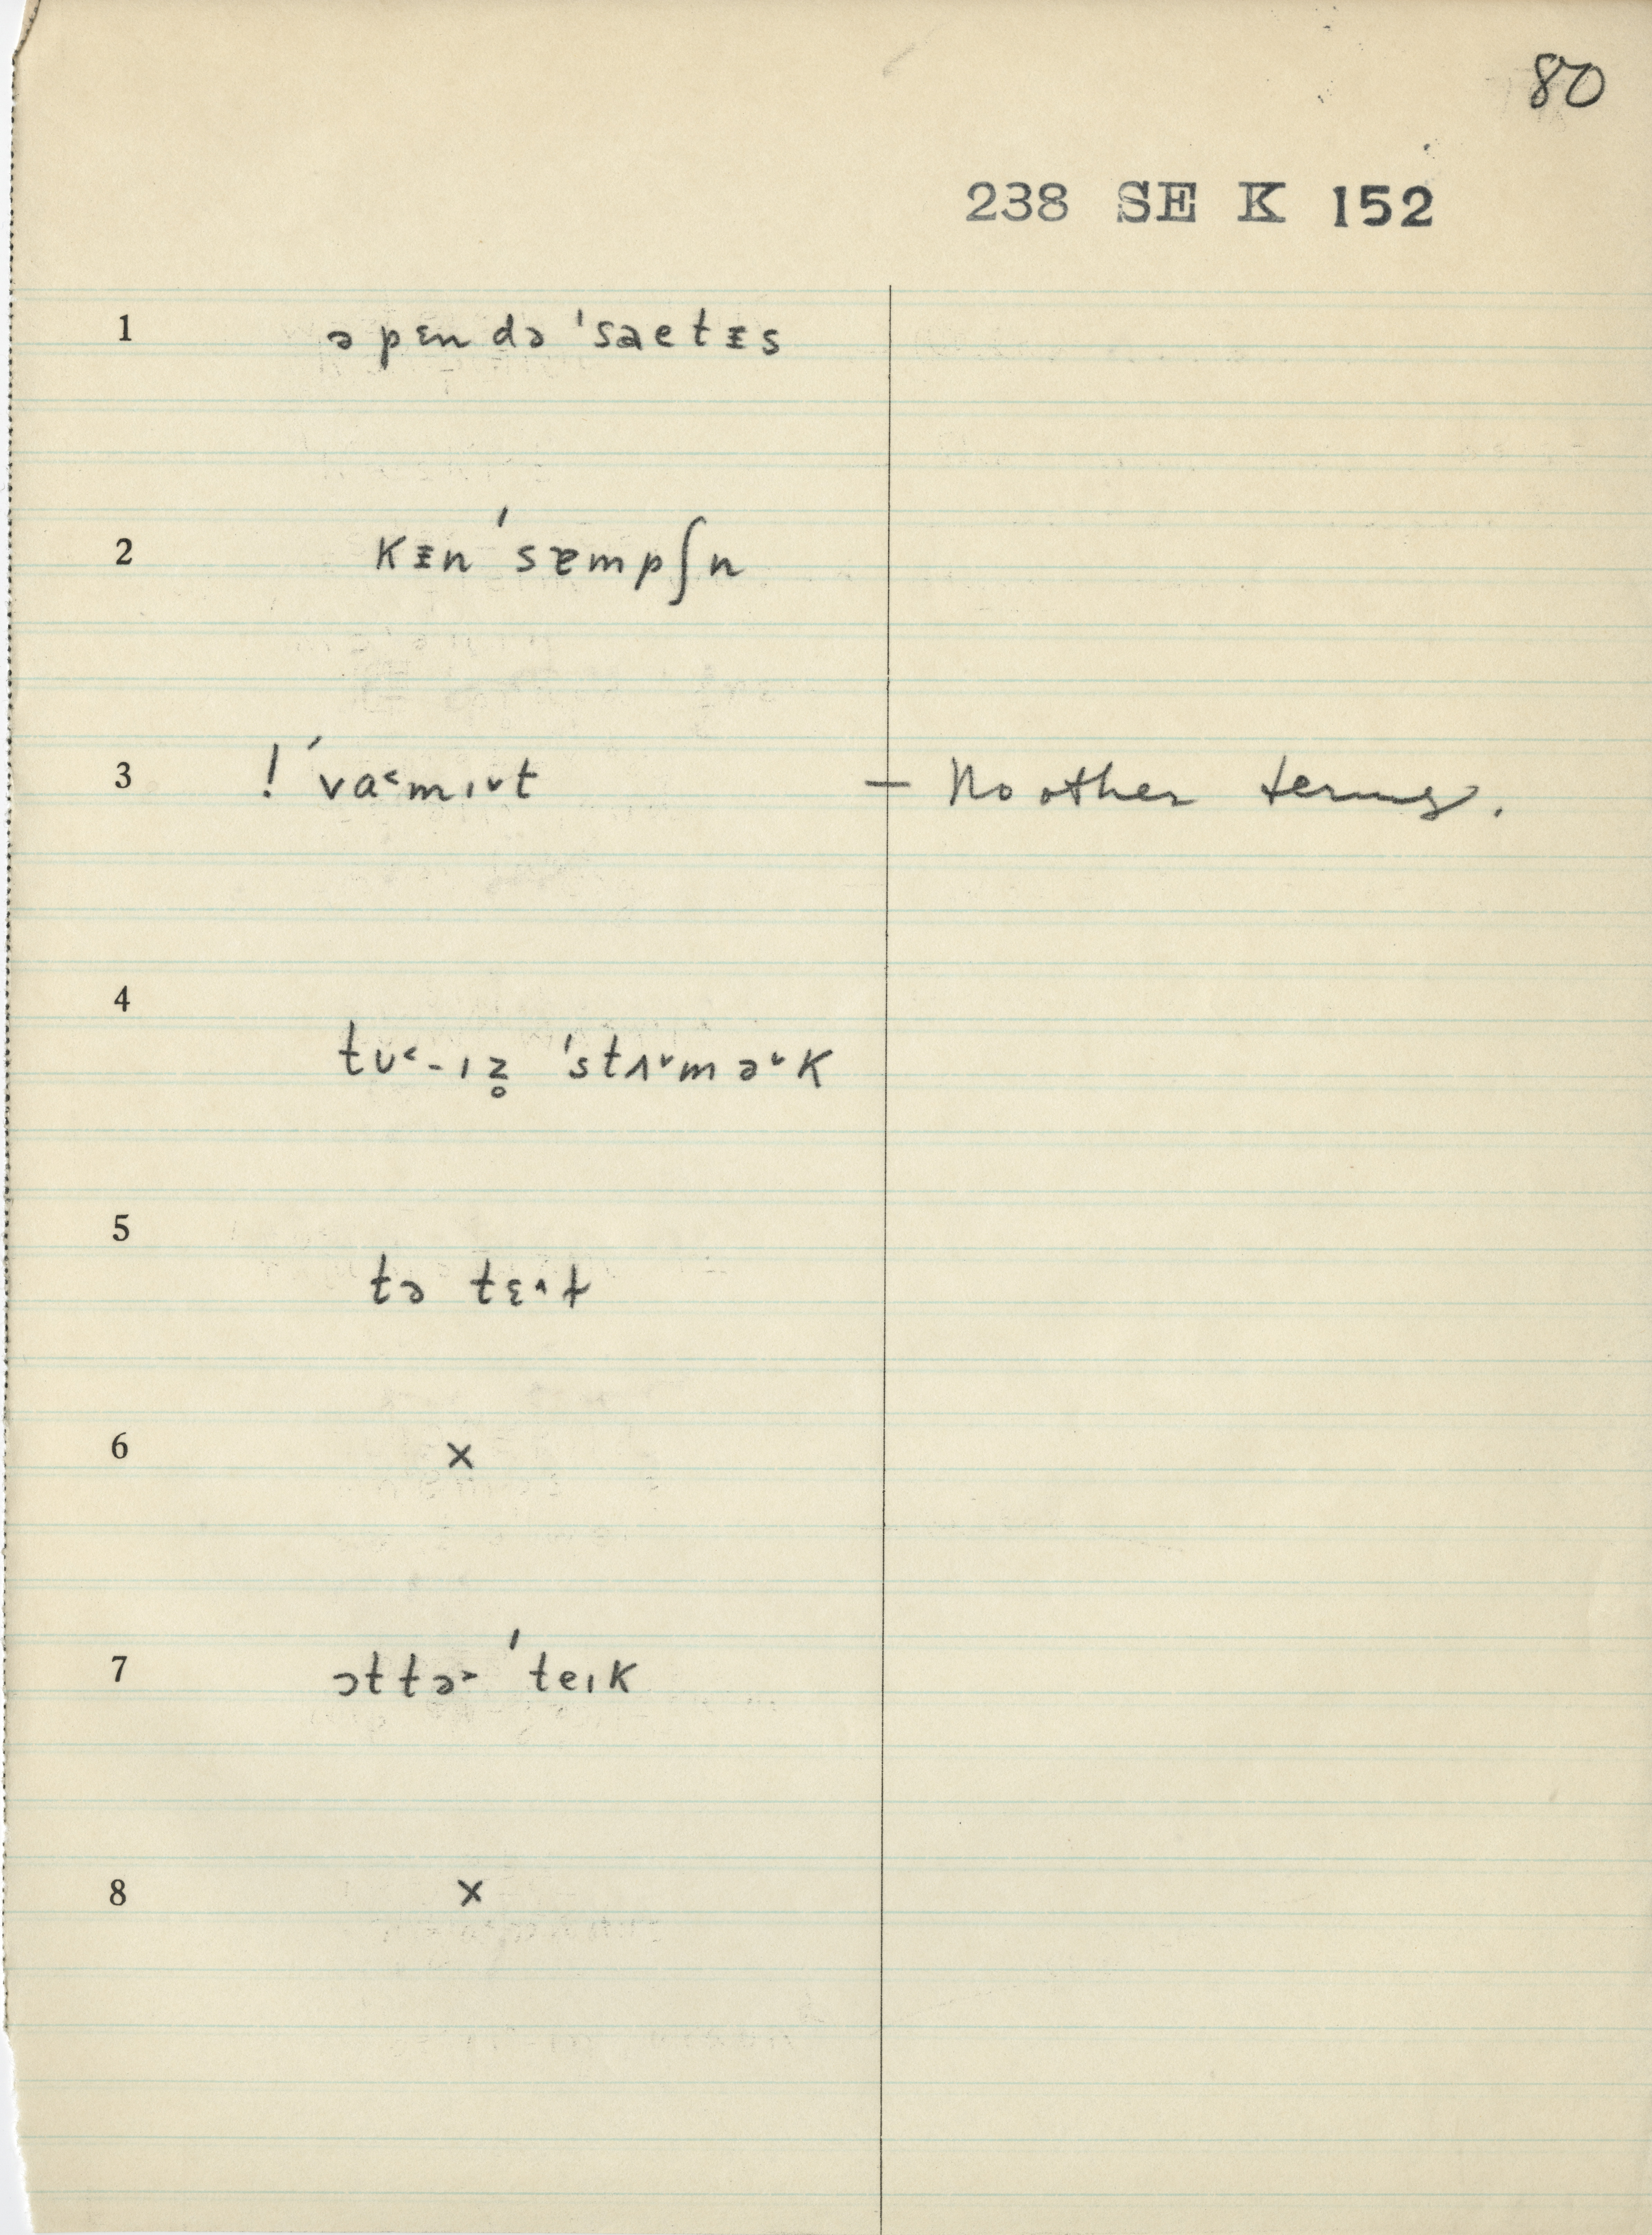 80
238 SE K 152
1 ə pɛn də ˈsaetᵻs
2 kᵻn ˈsɐmpʃn
3 ! ˈva˂mɪ˅t — No other terms.
4 tʊ˂-ɪz̥ ˈstʌ˅mə˅k
5 tə tɛ˄t
6 ×
7 ɔttə˃ ˈteɪk
8 ×